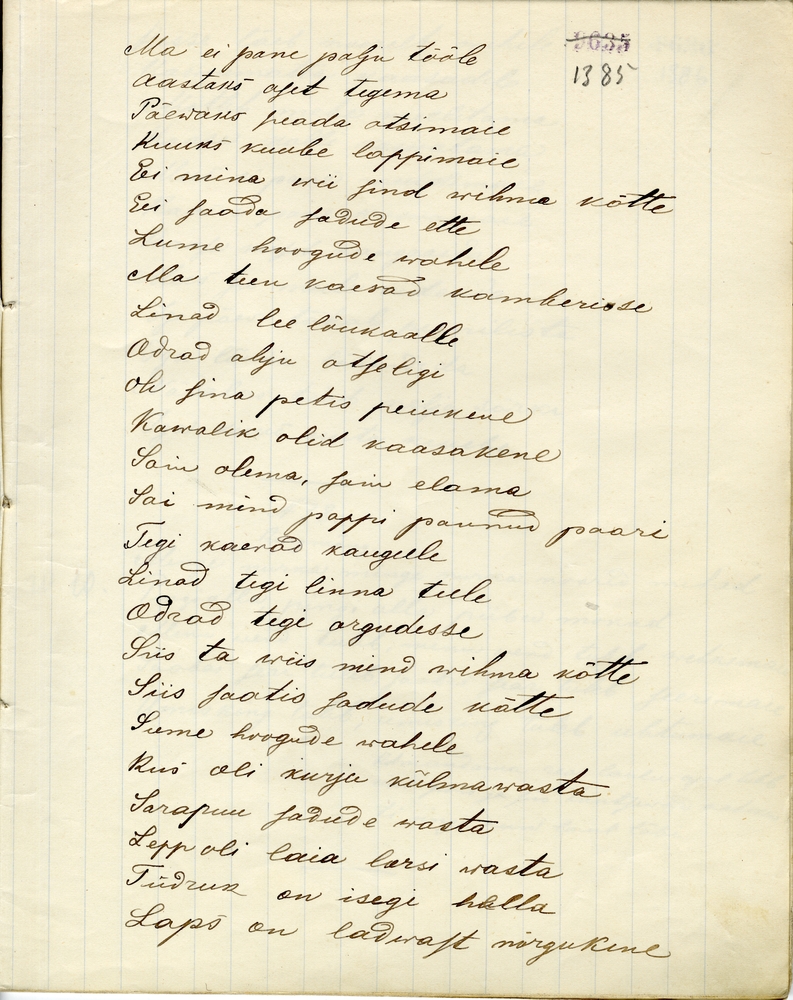 9635
1385
Ma ei pane palju tööle
aastaks aset tegema
Päewaks peada otsimaie
Kuuks kuube lappimaie
Ei mina wii sind wihma kätte
Ei saada sadude ette
Lume hoogude wahele
Ma teen kaerad kamberisse
Linad lee lõukaalle
Odrad ahju otseligi
Oh sina petis peiukene
Kawalik olid kaasakene
Sain olema, sain elama
Sai mind pappi pannud paari
Tegi kaerad kaugele
Linad tegi linna teele
Odrad tegi orgudesse
Siis ta wiis mind wihma kätte
Siis saatis sadude kätte
Lume hoogude wahele
Kus oli kurja külma wasta
Sarapuu sadude wasta
Lepp oli laia larsi wasta
Tüdruk on isegi hella
Laps on ladwast nõrgukene